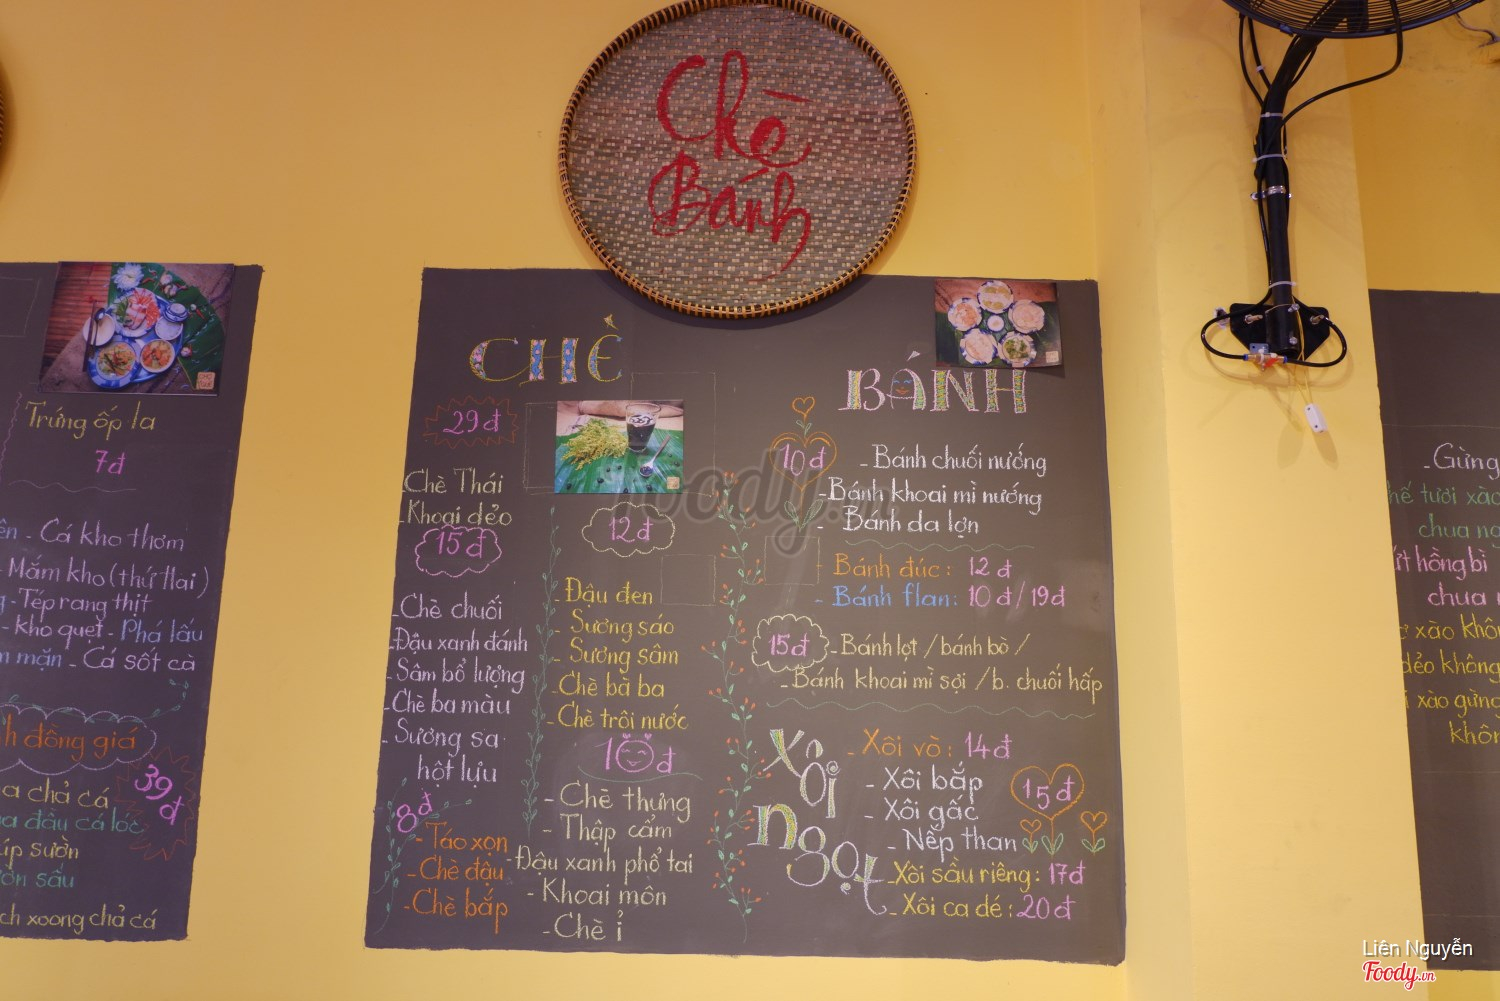 Chè
Bánh
Trứng ốp la
7đ
- Cá kho thơm
- Mắm kho (thứ Hai)
- Tép rang thịt
- Kho quẹt - Phá lấu
mặn - Cá sốt cà
đồng giá
39đ
chả cá
đầu cá lóc
sườn
sấu
xoong chả cá
CHÈ
29đ
- Chè Thái
- Khoai dẻo
15đ
- Chè chuối
- Đậu xanh đánh
- Sâm bổ lượng
- Chè ba màu
- Sương sa
hột lựu
8đ
- Táo xọn
- Chè đậu
- Chè bắp
12đ
- Đậu đen
- Sương sáo
- Sương sâm
- Chè bà ba
- Chè trôi nước
10đ
- Chè thưng
- Thập cẩm
- Đậu xanh phổ tai
- Khoai môn
- Chè ỉ
BÁNH
10đ
- Bánh chuối nướng
- Bánh khoai mì nướng
- Bánh da lợn
- Bánh đúc: 12đ
- Bánh flan: 10đ/19đ
15đ - Bánh lọt / bánh bò /
- Bánh khoai mì sợi / b. chuối hấp
Xôi ngọt
- Xôi vò: 14đ
- Xôi bắp
- Xôi gấc
- Nếp than
15đ
- Xôi sầu riêng: 17đ
- Xôi ca dé: 20đ
- Gừng
tươi xào
chua
hồng bì
chua
xào không
dẻo không
xào gừng
không
foody.vn
Liên Nguyễn
Foody.vn